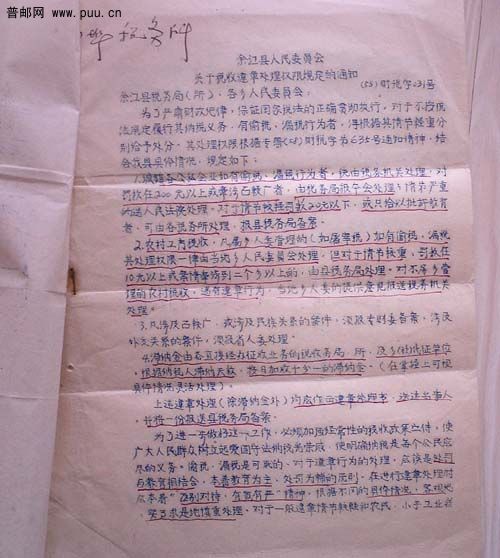 普邮网
www.puu.cn
余江县人民委员会
关于税收违章处理权限规定的通知
(55)财税字031号
余江县税务局(所)、各乡人民委员会:
为了严肃财政纪律,保证国家税法的正确贯彻执行,对于不按税
法规定履行其纳税义务,有偷税、漏税行为者,得根据其情节轻重分
别给予处分,其处理权限根据专署财税字第635号通知精神,结
合我县具体情况,规定如下:
1.城镇各公私企业如有偷税、漏税行为者,统由税务机关处理,对
罚款在200元以上或牵涉面较广者,由税务局报县委会处理,情节严重
的送人民法院处理,对于情节较轻罚款20元以下,或只给以批评教育
者,可由各税务所处理,报县税务局备案。
2.农村工商税收,凡属乡人委管理的(如屠宰税)如有偷税、漏税
其处理权限一律由当地乡人民委员会处理,但对于情节较重,罚款在
10元以上或案情牵涉到二个乡以上的,由县税务局处理,对不属乡管
理的农村税收,遇有违章行为,当地乡人委的提示意见报送税务机关
处理。
3.凡涉及面较广,或涉及民族关系的案件,深报专财委备案,涉及
外交关系的案件,深报省人委处理。
4.滞纳金由各直接经办征收业务的税收务局、所、及乡的代征单位,
根据纳税人滞纳天数,按日加收千分之一的滞纳金。(在掌握上可视
具体情况灵活处理)
上述违章处理(除滞纳金外)均应作出违章处理书,送达当事人
并将一份报送县税务局备案。
为了进一步做好这一工作,必须加强经常性的税收政策宣传,使
广大人民群众树立起爱国守法纳税光荣感,使明确纳税是每个公民应
尽的义务,偷税、漏税是可耻的,对于违章行为的处理,应该是处罚
与教育相结合,本着教育为主,处罚为辅的原则,在进行违章处理时
应本着"区别对待,有宽有严"精神,根据不同的具体情况,客观地
实事求是地慎重处理,对于一般违章情节较轻和农民,小手工业者